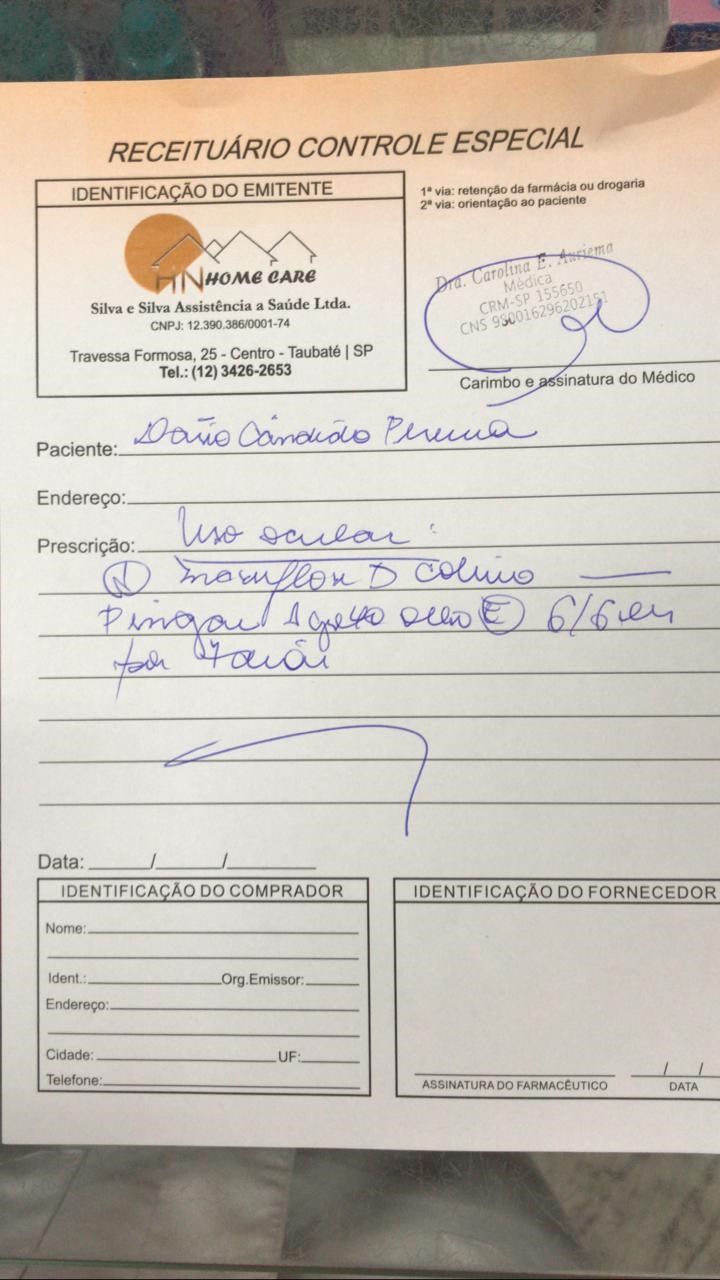 RECEITUÁRIO CONTROLE ESPECIAL
IDENTIFICAÇÃO DO EMITENTE
HN HOME CARE
Silva e Silva Assistência a Saúde Ltda.
CNPJ: 12.390.386/0001-74
Travessa Formosa, 25 - Centro - Taubaté | SP
Tel.: (12) 3426-2653
1ª via: retenção da farmácia ou drogaria
2ª via: orientação ao paciente
Dra. Carolina E. Auriema
Médica
CRM-SP 155650
CNS 980016296202151
Carimbo e assinatura do Médico
Paciente: Dario Cândido Pereira
Endereço:
Prescrição: Uso ocular:
1) D colírio
Pingar 1 gota olho E 6/6
por
Data: / /
IDENTIFICAÇÃO DO COMPRADOR
Nome:
Ident.: Org.Emissor:
Endereço:
Cidade: UF:
Telefone:
IDENTIFICAÇÃO DO FORNECEDOR
ASSINATURA DO FARMACÊUTICO
/ /
DATA